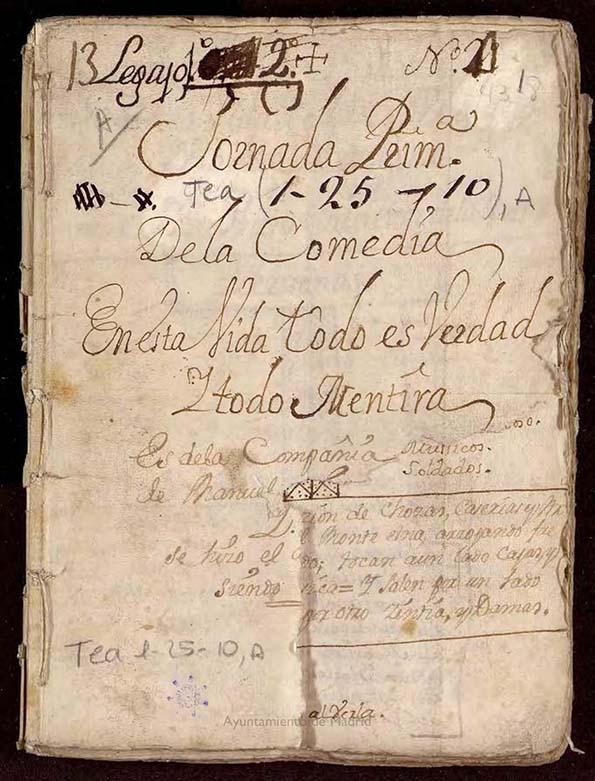 13 Legajo 1º 2º + Nº. 21
4318
A
Jornada Prim.ª
Tea (1-25-10), A
De la Comedia
En esta Vida todo es Verdad
Y todo Mentira
Es de la Compañia
Mussicos.
Soldados.
de Manuel
cion de Chozas, Caserias, y
Monte etna, arrojando fue
se hizo el
go; tocan a un lado Cajas, y
siendo
sica= Y salen por un lado
por otro Cintia, y Damas.
Tea 1-25-10, A
Ayuntamiento de Madrid